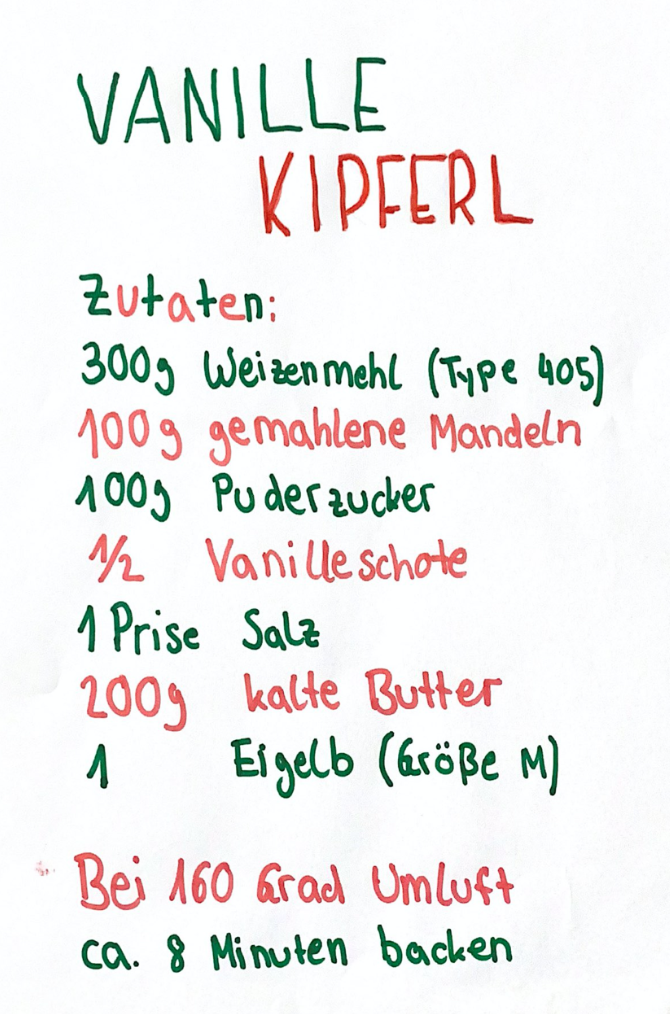 VANILLE
KIPFERL
Zutaten:
300g Weizenmehl (Type 405)
100g gemahlene Mandeln
100g Puderzucker
1/2 Vanilleschote
1 Prise Salz
200g kalte Butter
1 Eigelb (Größe M)
Bei 160 Grad Umluft
ca. 8 Minuten backen